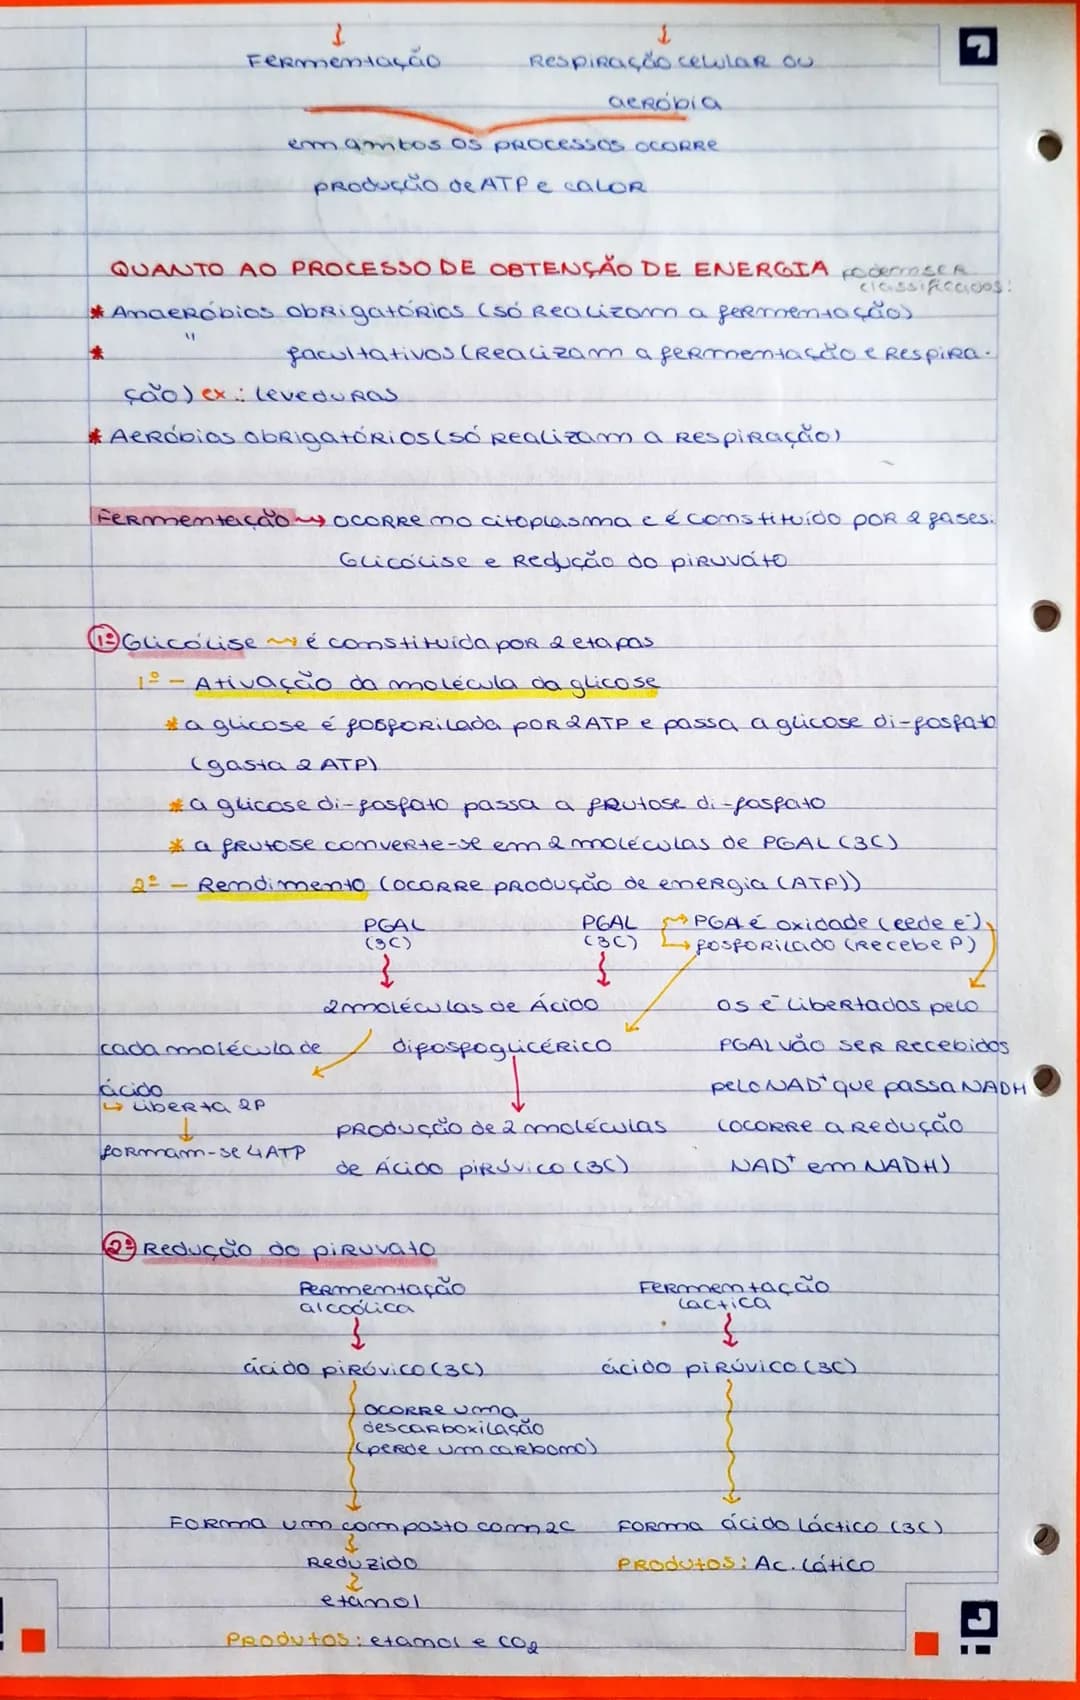 Fermentação Respiração celular ou
aeróbia
em ambos os processos ocorre
produção de ATP e calor
QUANTO AO PROCESSO DE OBTENÇÃO DE ENERGIA podem ser
classificados:
* Anaeróbios obrigatórios (só realizam a fermentação)
* " facultativos (Realizam a fermentação e respira-
ção) ex.: leveduras
* Aeróbios obrigatórios (só realizam a respiração)
Fermentação → ocorre no citoplasma e é constituído por 2 fases:
Glicólise e Redução do piruváto
1º Glicólise → é constituida por 2 etapas
1º - Ativação da molécula da glicose
* a glicose é fosforilada por 2 ATP e passa a glicose di-fosfato
(gasta 2 ATP)
* a glicose di-fosfato passa a frutose di-fosfato
* a frutose converte-se em 2 moléculas de PGAL (3C)
2º - Rendimento (ocorre produção de energia (ATP))
PGAL PGAL → PGA é oxidade (cede e⁻)
(3C) (3C) → fosforilado (recebe P)
2 moléculas de Ácido os e⁻ libertadas pelo
cada molécula de difosfoglicérico PGAL vão ser recebidos
ácido pelo NAD⁺ que passa NADH
↳ liberta 2P
produção de 2 moléculas (ocorre a redução
formam-se 4 ATP
de Ácido pirúvico (3C) NAD⁺ em NADH)
2º Redução do piruvato
Fermentação Fermentação
alcoólica láctica
ácido pirúvico (3C) ácido pirúvico (3C)
ocorre uma
descarboxilação
(perde um carbono)
Forma um composto com 2C Forma ácido láctico (3C)
Reduzido Produtos: Ac. lático
etanol
Produtos: etanol e CO₂